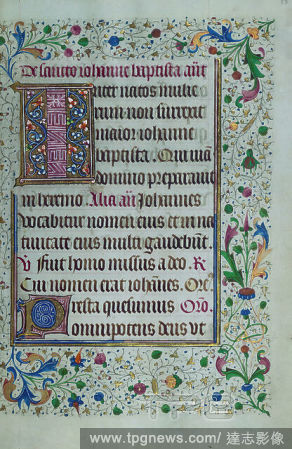 De sancto iohanne baptista añt
Inter natos mulie
rum non surrexit
maior iohanne
baptista. Qui uiā
domino preparauit
in heremo. Alia añ Johannes
vocabitur nomen eius et in na
tiuitate eius multi gaudebunt.
V Fuit homo missus a deo. R
Cui nomen erat iohānes. Ore
Presta quesumus Oro
omnipotens deus vt
www.tpgnews.com/ 達志影像